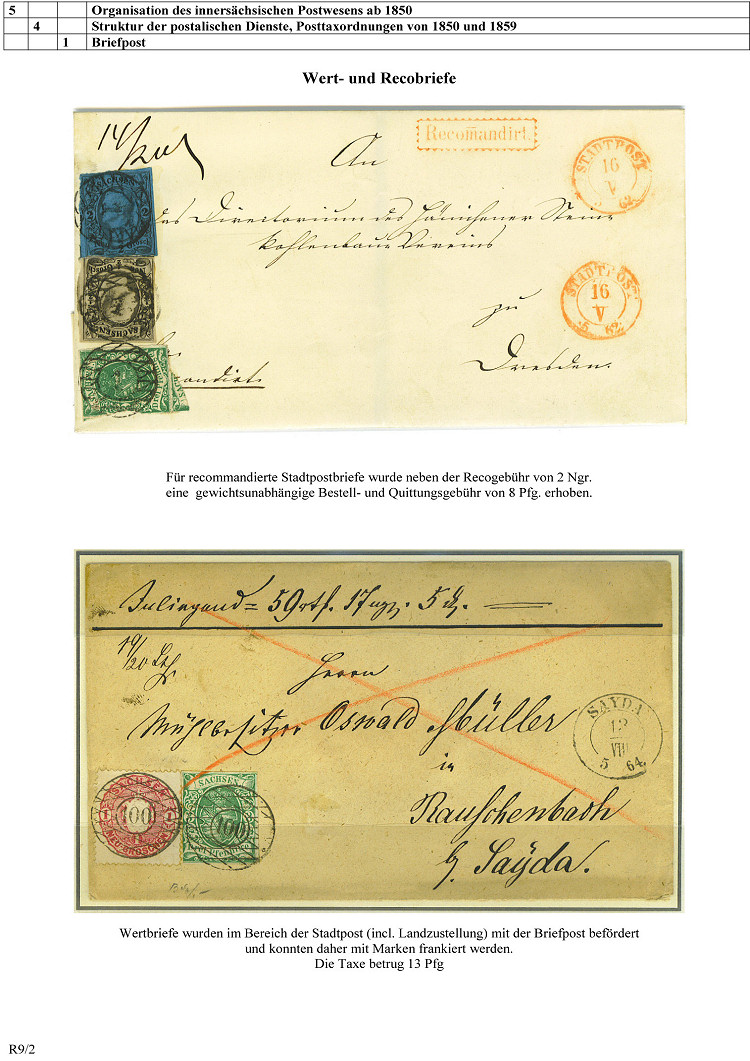 5 Organisation des innersächsischen Postwesens ab 1850
4 Struktur der postalischen Dienste, Posttaxordnungen von 1850 und 1859
1 Briefpost
Wert- und Recobriefe
Recomandirt.
STADTPOST
16
V
62
An
SACHSEN
2
das Directorium des Hänichener Stein-
kohlenbau-Vereins
SACHSEN
STADTPOST
16
V
5 62
zu
Dresden.
Für recommandierte Stadtpostbriefe wurde neben der Recogebühr von 2 Ngr.
eine gewichtsunabhängige Bestell- und Quittungsgebühr von 8 Pfg. erhoben.
Inliegend = 59 rtl. 17 ngr. 5 d.
Herrn
Mühlbesitzer Oswald Müller
in
Rauschenbach
b/ Sayda.
SAYDA
12
VIII
5 64
SACHSEN
100
1
NEU-GROSCHEN
SACHSEN
100
Wertbriefe wurden im Bereich der Stadtpost (incl. Landzustellung) mit der Briefpost befördert
und konnten daher mit Marken frankiert werden.
Die Taxe betrug 13 Pfg
R9/2